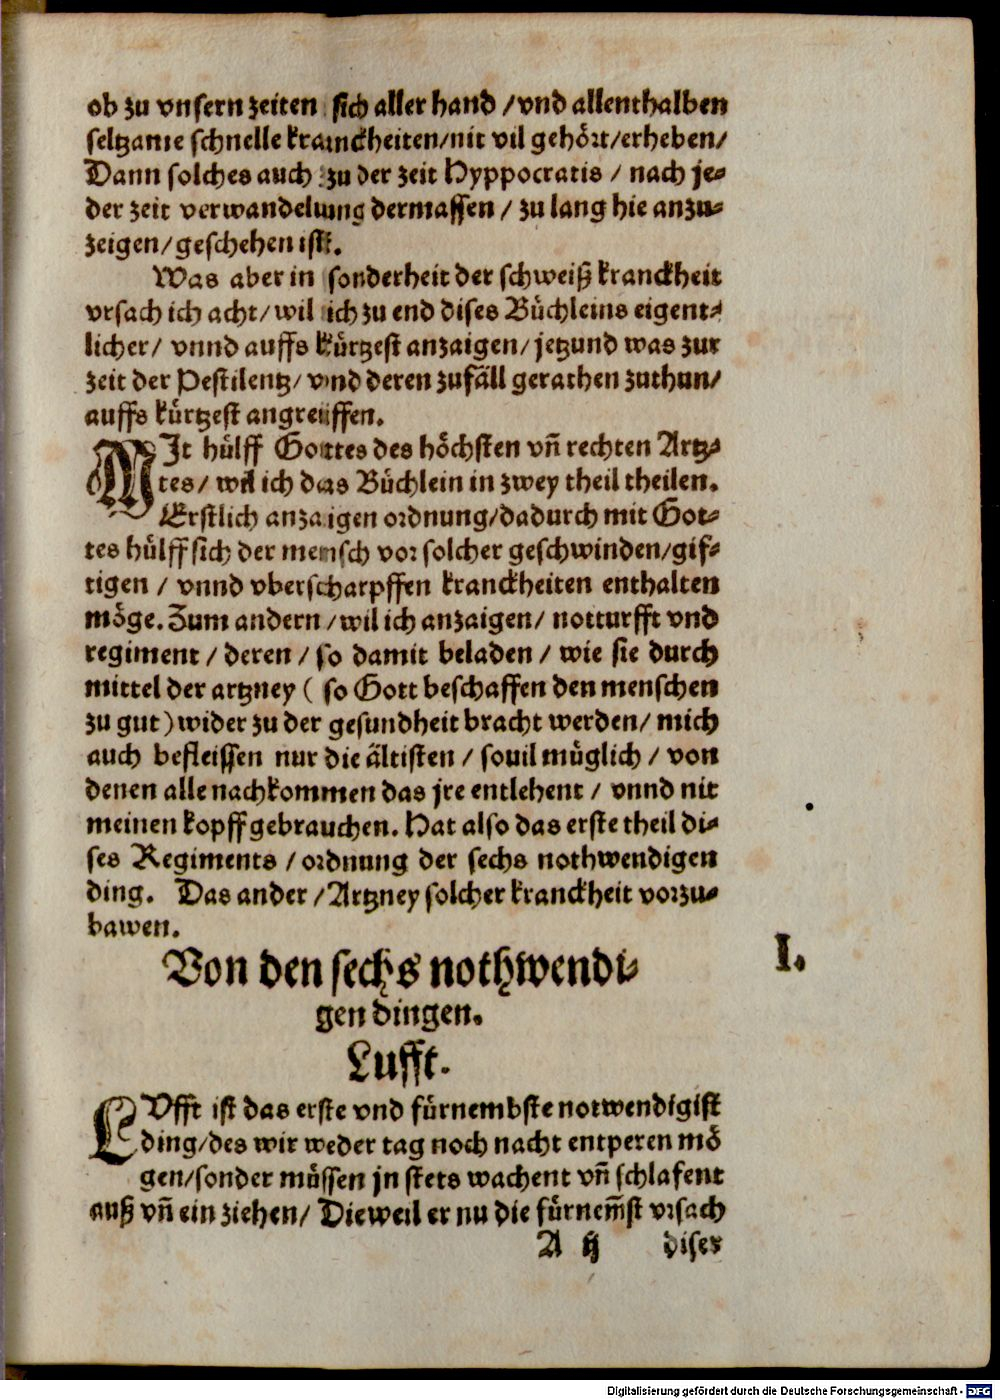 ob zu vnsern zeiten sich aller hand /vnd allenthalben
seltzame schnelle kranckheiten/nit vil gehört/erheben/
Dann solches auch zu der zeit Hyppocratis / nach je⸗
der zeit verwandelung dermassen / zu lang hie anzu⸗
zeigen/geschehen ist.
Was aber in sonderheit der schweiß kranckheit
vrsach ich acht/ wil ich zu end dises Büchleins eigent⸗
licher/ vnnd auffs kürtzest anzaigen/ jetzund was zur
zeit der Pestilentz/ vnd deren zufäll gerathen zuthun/
auffs kürtzest angreiffen.
MIt hülff Gottes des höchsten vñ rechten Artz⸗
tes/ wil ich das Büchlein in zwey theil theilen.
Erstlich anzaigen ordnung/dadurch mit Got⸗
tes hülff sich der mensch vor solcher geschwinden/gif⸗
tigen / vnnd vberscharpffen kranckheiten enthalten
möge. Zum andern /wil ich anzaigen/ notturfft vnd
regiment / deren / so damit beladen / wie sie durch
mittel der artzney ( so Gott beschaffen den menschen
zu gut ) wider zu der gesundheit bracht werden/ mich
auch befleissen nur die ältisten / souil müglich / von
denen alle nachkommen das jre entlehent / vnnd nit
meinen kopff gebrauchen. Hat also das erste theil di⸗
ses Regiments /ordnung der sechs nothwendigen
ding. Das ander /Artzney solcher kranckheit vorzu⸗
bawen.
Von den sechs nothwendi⸗ I.
gen dingen.
Lufft.
LVfft ist das erste vnd fürnembste notwendigist
ding/des wir weder tag noch nacht entperen mö
gen/sonder müssen jn stets wachent vñ schlafent
auß vñ ein ziehen/ Dieweil er nu die fürnem̃st vrsach
A ij diser
Digitalisierung gefördert durch die Deutsche Forschungsgemeinschaft - DFG